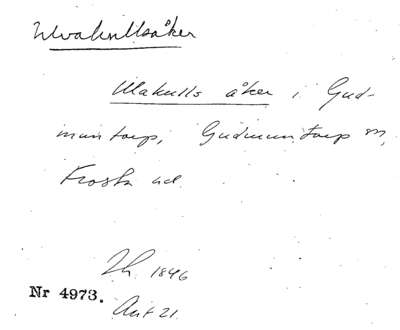 Ulvakullsåker
Ulakulls åker i Gud-
muntorp, Gudmuntorp sn,
Frosta hd.
Lh. 1846
Nr 4973.
Ant 21.